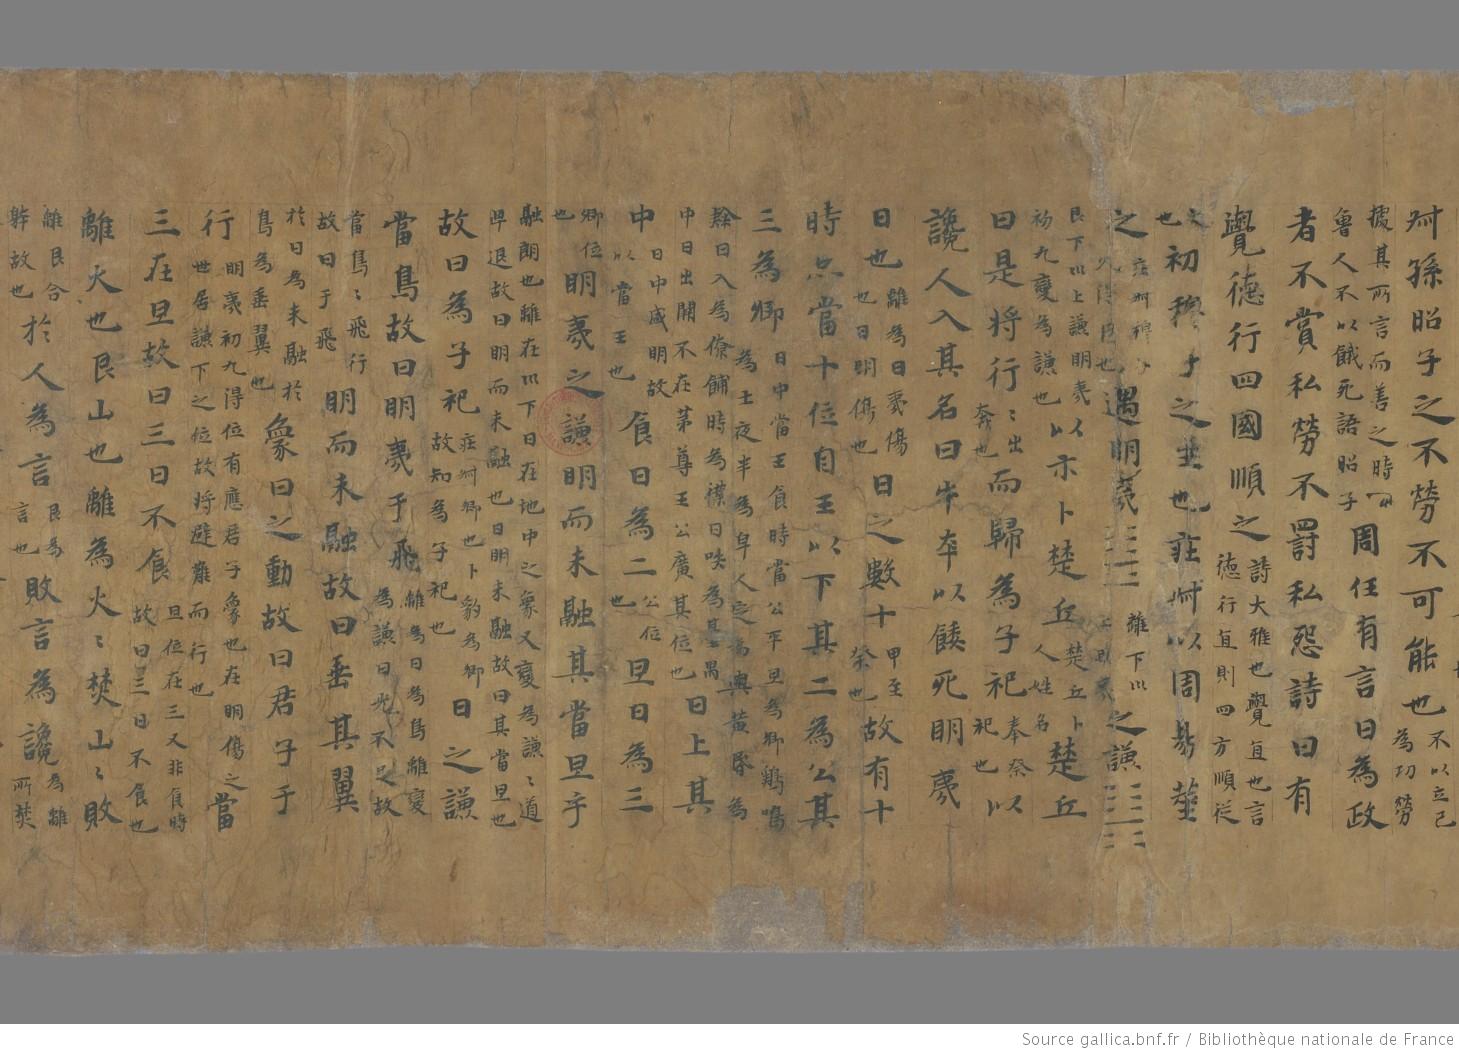 叔孫昭子之不勞不可能也不以立己為功勞
據其所言而善之時魯人不以餓死語昭子周任有言曰為政
者不賞私勞不罰私怨詩曰有
覺德行四國順之詩大雅也覺直也言德行直則四方順從
文也初穆子之生也莊叔以周易莁
之莊叔穆子得臣也遇明夷䷣離下以上明夷之謙䷎
艮下以上謙明夷初九變為謙也以示卜楚丘楚丘卜人姓名楚丘
曰是將行行出奔也而歸為子祀奉祭祀也以
讒人入其名曰牛卒以餒死明夷
日也離為日夷傷也日明傷也日之數十甲至癸也故有十
時亦當十位自王以下其二為公其
三為卿日中當王食時當公平旦為卿鷄鳴為士夜半為皁人定為輿黃昏為
隸日入為僚餔時為僕日昳為臺禺中日出闕不在第尊王公廣其位也日上其
中日中盛明故以當王也食日為二公位也旦日為三
卿位也明夷之謙明而未融其當旦乎
融朗也離在以下日在地中之象又變為謙〻道卑退故曰明而未融也日明未融故曰其當旦也
故曰為子祀莊叔卿也卜豹為卿故知為子祀也日之謙
當鳥故曰明夷于飛離為日為鳥離變為謙日光不足故
當鳥〻飛行故曰于飛明而未融故曰垂其翼
於日為未融於鳥為垂翼也象日之動故曰君子于
行明夷初九得位有應君子象也在明傷之世居謙下之位故將避難而行也當
三在旦故曰三日不食旦位在三又非食時故曰三日不食也
離火也艮山也離為火〻焚山〻敗
離艮合躰故也於人為言艮為言也敗言為讒為離所焚
Source gallica.bnf.fr / Bibliothèque nationale de France